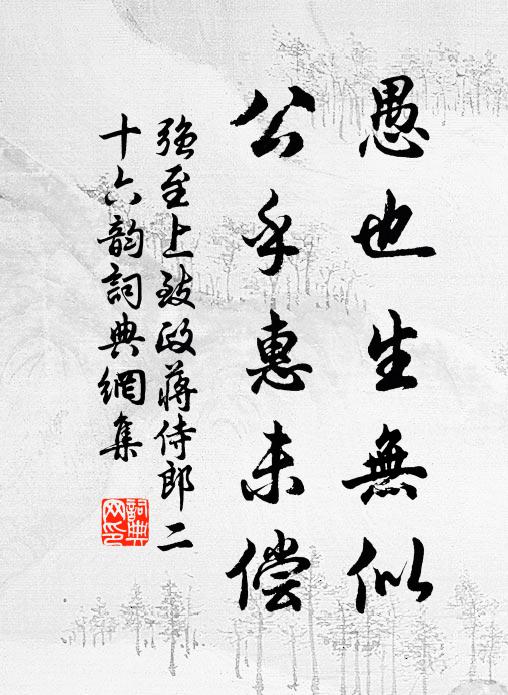 愚也生無似
公乎惠未偿
強至上致政蔣侍郎二
十六韵詞典網集
詞典
网印